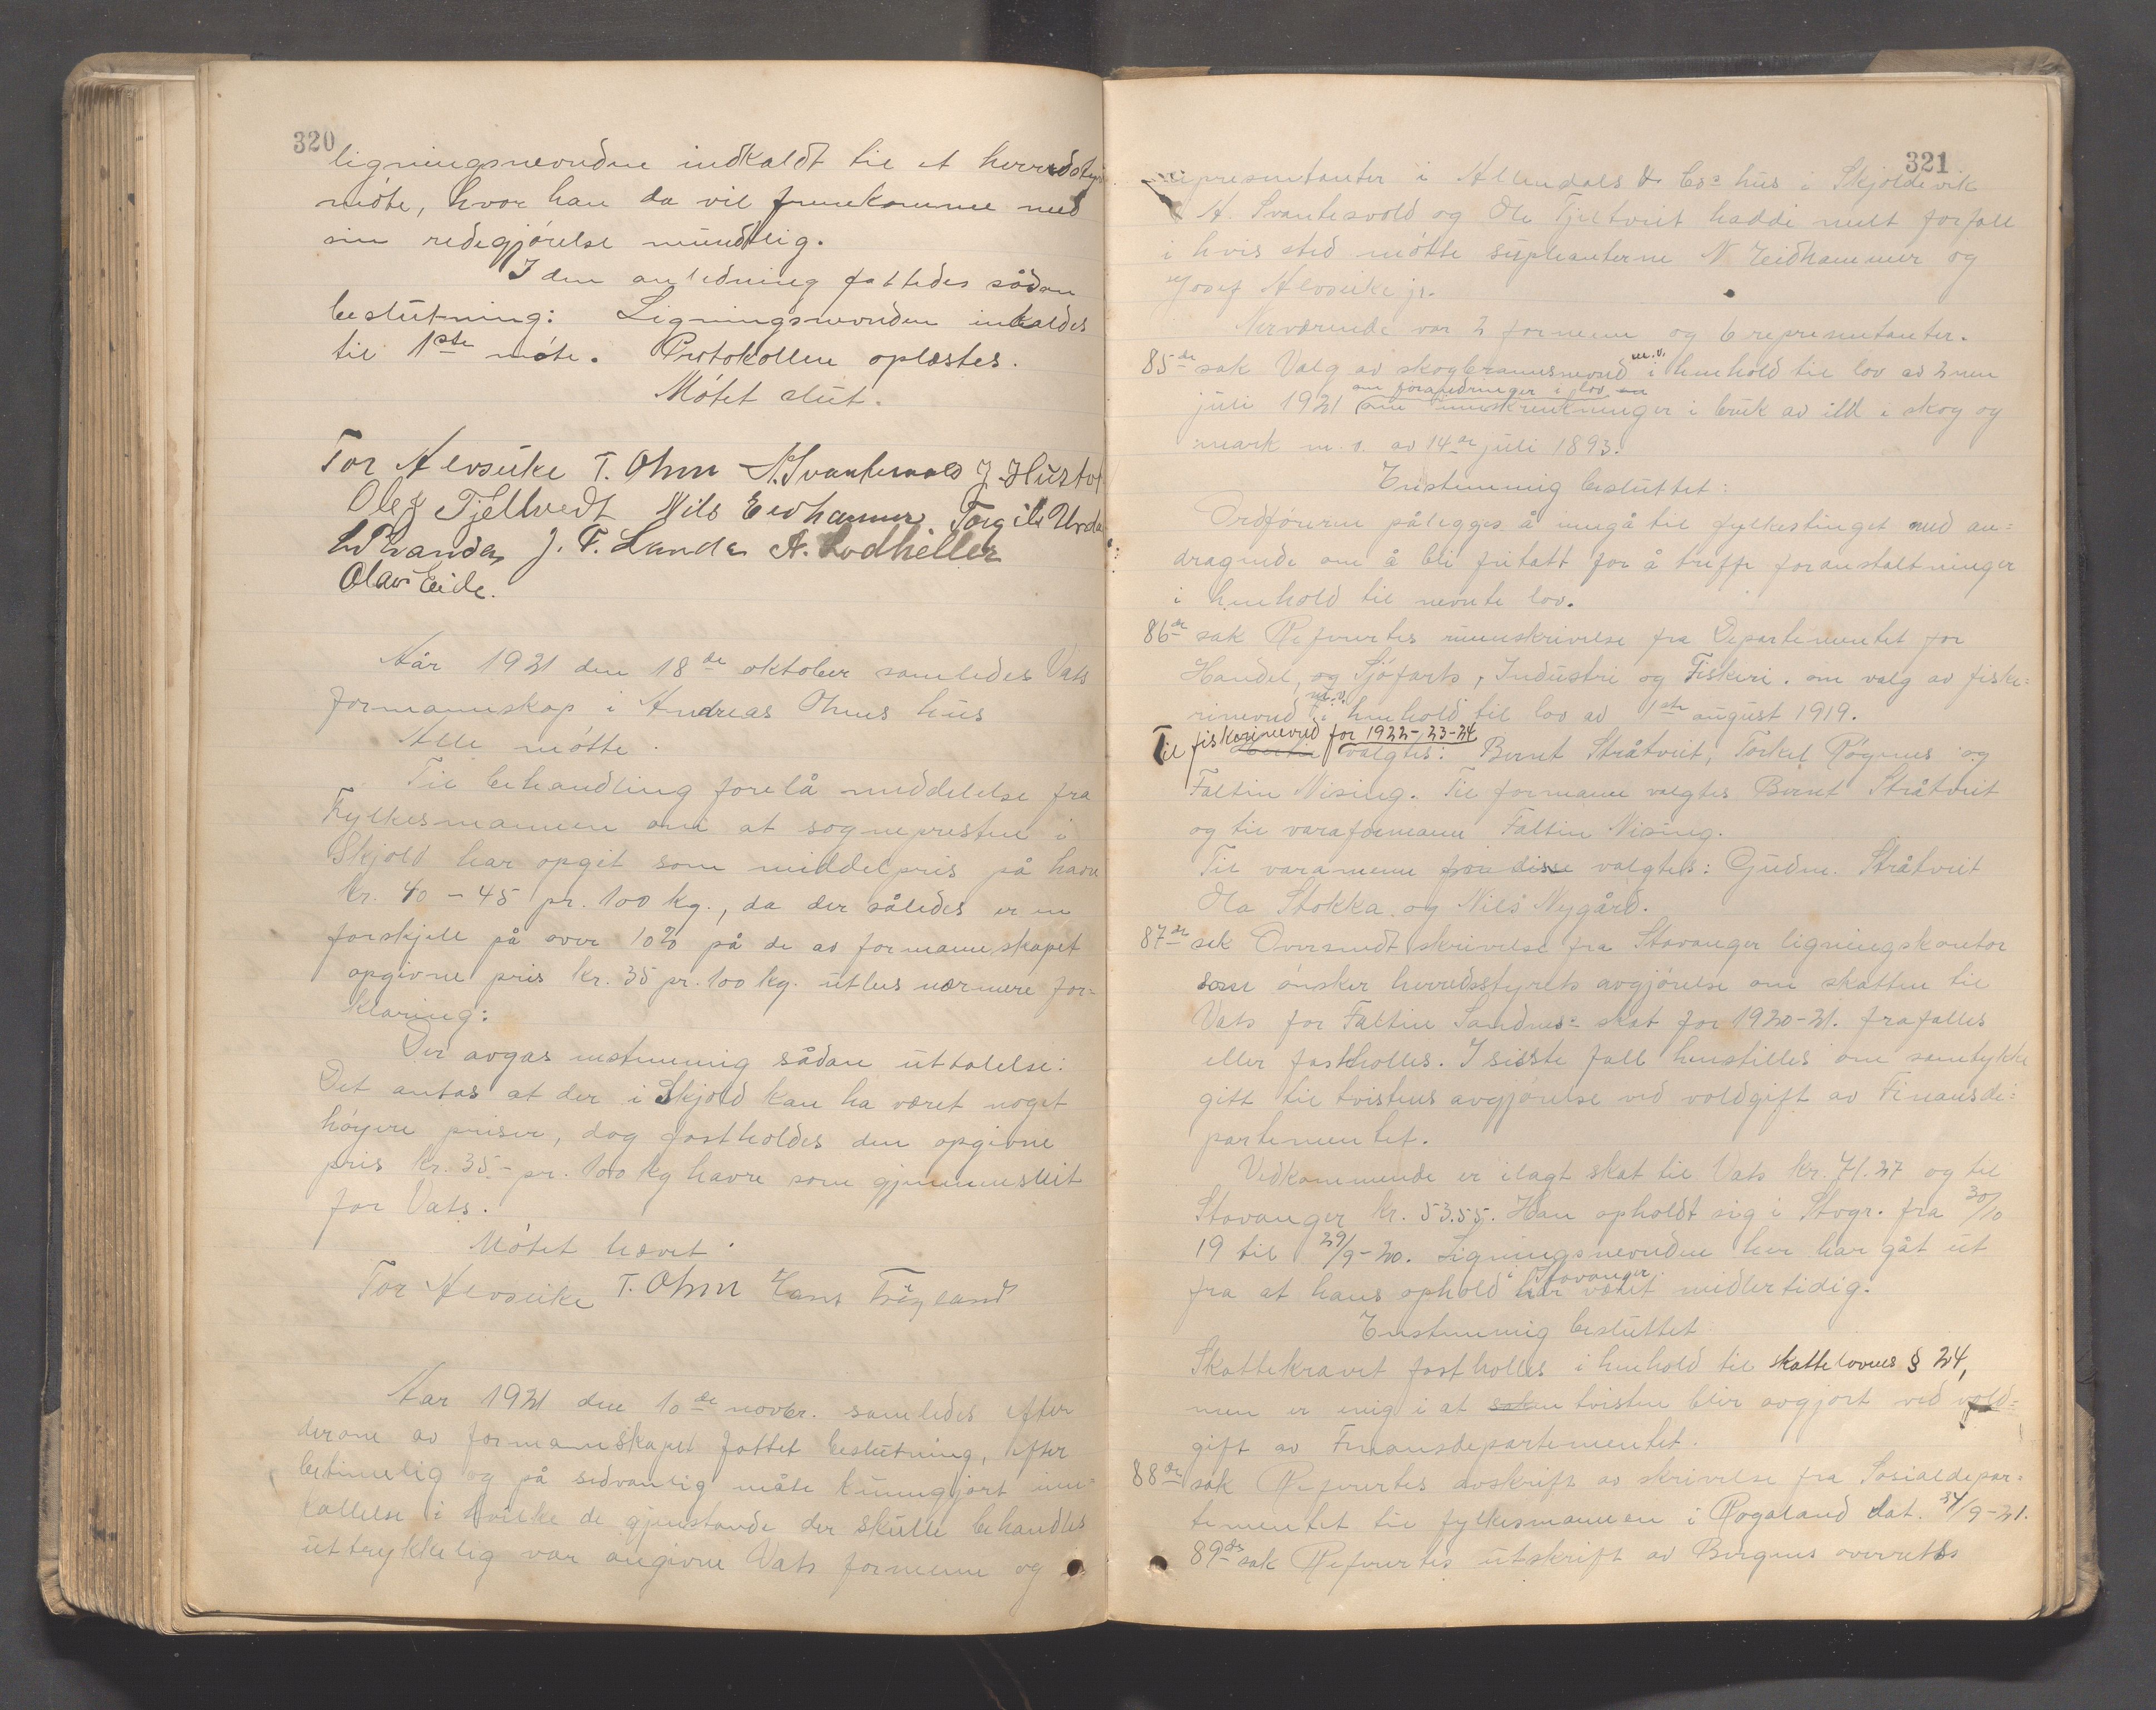 320
ligningsnevnden indkaldt til et herredsty
møte, hvor han da vil fremkomme med
sin redegjørelse mundtlig.
I den anledning fattedes sådan
beslutning: Ligningsnevnden indkaldes
til 1ste møte. Protokollen oplæstes.
Møtet slut.
Tor Alvseike T. Ohm A. Svantesvold J. Hustv
Ole J Tjeltvedt Nils Eidhammer Torgils Urda
J. T. Landa A. Lodheller
Olav Eide.
Aår 1921 den 18de oktober samledes Vats
formannskap i Andreas Ohms hus
Alle møtte.
Til behandling forelå meddelelse fra
Fylkesmannen om at sogneprestene i
Skjold har opgit som middelpris på havre
kr. 40 - 45 pr. 100 kg., da der således er en
forskjell på over 10% på de av formannskapet
opgivne pris kr. 35 pr. 100 kg. utbes nærmere for=
klaring:
Der avgas enstemmig sådan uttalelse:
Det antas at der i Skjold kan ha været noget
høyere priser, dog fastholdes den opgivne
pris kr. 35- pr. 100 kg havre som gjennemsnit
for Vats.
Møtet hævet.
Tor Alvseike T. Ohm Hans Frøyland
Aar 1921 den 10de novbr. samledes efter
derom av formannskapet fattet beslutning, efter
betimelig og på sedvanlig måte kunngjort inn=
kallelse i hvilke de gjenstande der skulle behandles
uttrykkelig var angivne Vats formenn og
321
representanter i Allendals & Co= hus i Skjoldevik
A. Svantesvold og Ole Tjeltveit hadde meldt forfall
i hvis sted møtte supleanterne N. Eidhammer og
Josef Alvseike jr.
Nerværende var 2 formenn og 6 representanter.
85de sak Valg av skogbrannsnevnd m.v. i henhold til lov av 2nen
juli 1921 om forandringer i lov om innskrenkninger i bruk av ild i skog og
mark m.v. av 14de juli 1893.
Enstemmig besluttet:
Ordføreren pålegges å inngå til fylkestinget med an=
dragende om å bli fritatt for å treffe foranstaltninger
i henhold til nevnte lov.
86de sak Refertes rundskrivelse fra Departementet for
Handel, og Sjøfarts, Industri og Fiskeri. om valg av fiske=
rinevnd m.v. i henhold til lov av 1ste august 1919.
Til fiskerinevnd for 1922-23-24
valgtes: Bernt Stråtveit, Torkel Røgnes og
Faltin Nising. Til formann valgtes Bernt Stråtveit
og til varaformann Faltin Nising.
Til varamenn for disse valgtes: Gudm. Stråtveit
Ola Stokka og Nils Nygård.
87de sak Oversendt skrivelse fra Stavanger ligningskontor
som ønsker herredsstyrets avgjørelse om skatten til
Vats for Faltin Sandnes= skat for 1920-21. frafalles
eller fastholles. I sidste fall henstilles om samtykke
gitt til tvistens avgjørelse ved voldgift av Finansde=
partementet.
Vedkommende er ilagt skat til Vats kr. 71.27 og til
Stavanger kr. 53.55. Han opholdt sig i Stvgr. fra 30/10
19 til 29/9-20. Ligningsnevnden her har gåt ut
fra at hans ophold i Stavanger har været midlertidig.
Enstemmig besluttet
Skattekravet fastholles i henhold til skattelovens § 24,
men er enig i at saken tvisten blir avgjort ved vold=
gift av Finansdepartementet.
88de sak Refertes avskrift av skrivelse fra Sosialdepar=
tementet til fylkesmannen i Rogaland dat. 24/9-21.
89de sak Refertes utskrift av Bergens overretts